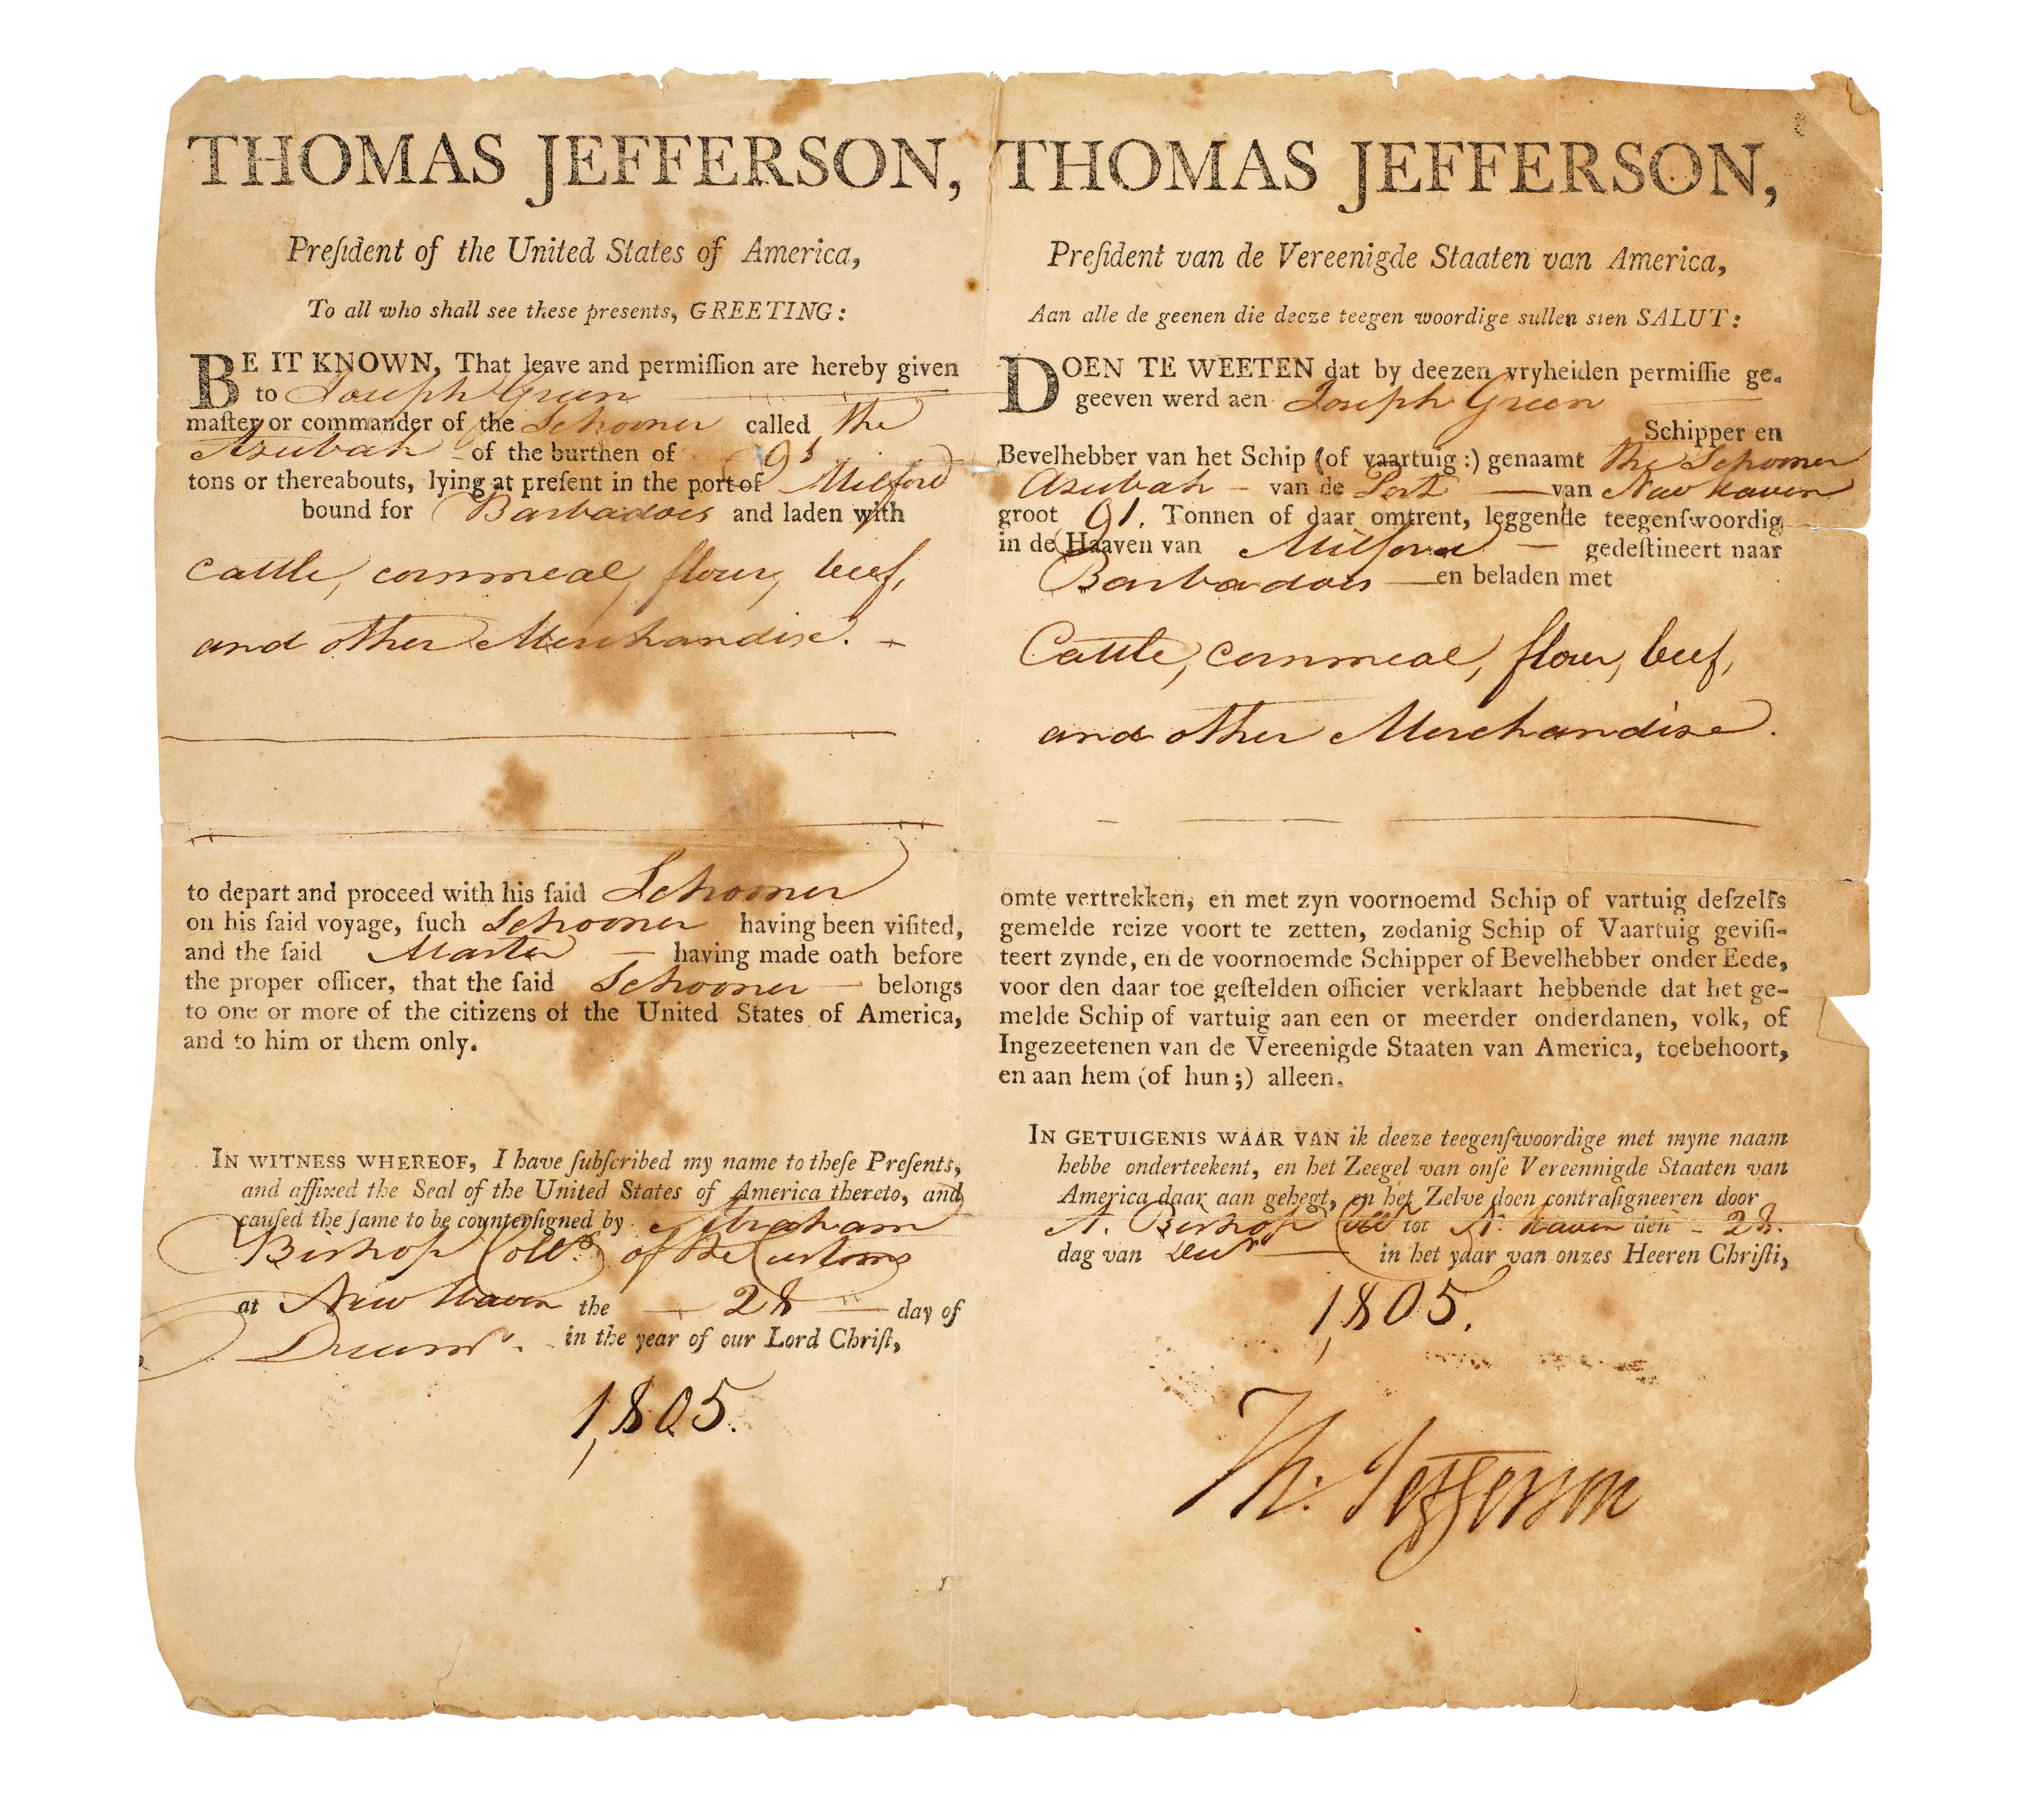 THOMAS JEFFERSON,
Preſident of the United States of America,
To all who shall see these presents, GREETING:
BE IT KNOWN, That leave and permiſſion are hereby given
to Joseph Green
maſter or commander of the Schooner called the
Azubah of the burthen of 91
tons or thereabouts, lying at preſent in the port of Milford
bound for Barbadoes and laden with
Cattle, cornmeal, flour, beef,
and other Merchandise.
to depart and proceed with his ſaid Schooner
on his ſaid voyage, ſuch Schooner having been viſited,
and the ſaid Master having made oath before
the proper officer, that the ſaid Schooner belongs
to one or more of the citizens of the United States of America,
and to him or them only.
IN WITNESS WHEREOF, I have ſubſcribed my name to theſe Preſents,
and affixed the Seal of the United States of America thereto, and
cauſed the ſame to be counterſigned by Abraham
Bishop Collr. of the Customs
at New Haven the 28 day of
Decemr. in the year of our Lord Chriſt,
1,805.
THOMAS JEFFERSON,
Preſident van de Vereenigde Staaten van America,
Aan alle de geenen die deeze teegen woordige sullen sien SALUT:
DOEN TE WEETEN dat by deezen vryheiden permiſſie ge-
geeven werd aen Joseph Green
Schipper en
Bevelhebber van het Schip (of vaartuig:) genaamt the Schooner
Azubah van de Port van New haven
groot 91. Tonnen of daar omtrent, leggende teegenſwoordig
in de Haaven van Milford gedeſtineert naar
Barbadoes en beladen met
Cattle, cornmeal, flour, beef,
and other Merchandise.
omte vertrekken, en met zyn voornoemd Schip of vartuig deſzelfs
gemelde reize voort te zetten, zodanig Schip of Vaartuig geviſi-
teert zynde, en de voornoemde Schipper of Bevelhebber onder Eede,
voor den daar toe geſtelden officier verklaart hebbende dat het ge-
melde Schip of vartuig aan een or meerder onderdanen, volk, of
Ingezeetenen van de Vereenigde Staaten van America, toebehoort,
en aan hem (of hun;) alleen.
IN GETUIGENIS WAAR VAN ik deeze teegenſwoordige met myne naam
hebbe onderteekent, en het Zeegel van onſe Vereennigde Staaten van
America daar aan gehegt, en het Zelve doen contraſigneeren door
A. Bishop Collr tot N. haven den 28.
dag van Decr in het yaar van onzes Heeren Chriſti,
1,805.
Th: Jefferson